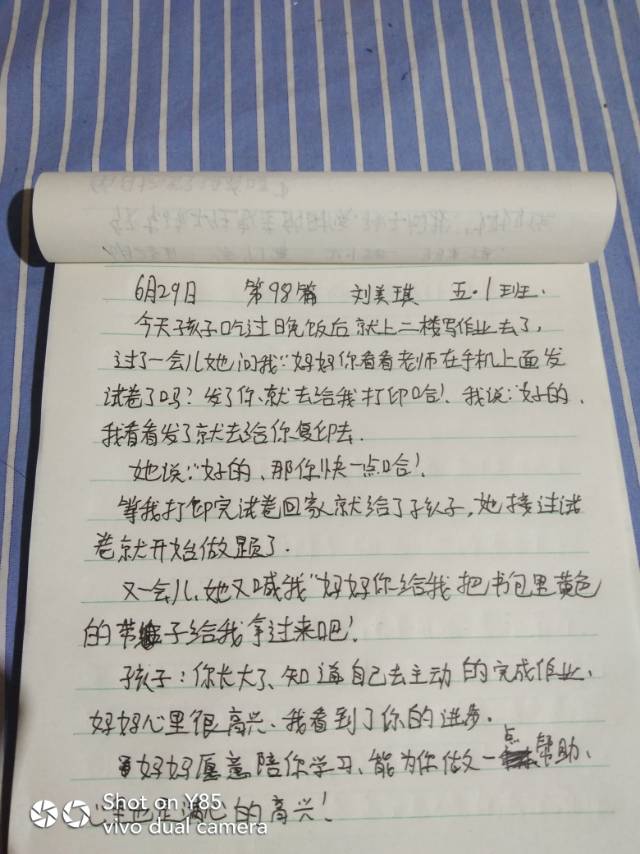 6月29日 第98篇 刘美琪 五.1班.
今天孩子吃过晚饭后就上二楼写作业去了,
过了一会儿她问我:"好好你看看老师在手机上面发
试卷了吗？发了你就去给我打印哈！我说:"好的,
我看看发了就去给你复印去.
她说:"好的、那你快一点哈！
等我打印完试卷回家就给了孩子,她接过试
卷就开始做题了.
又一会儿,她又喊我"好好你给我把书包里黄色
的 子给我拿过来吧！
孩子:你长大了、知道自己去主动的完成作业、
好好心里很高兴、我看到了你的进步.
好好愿意陪你学习、能为你做一点帮助、
心 满心的高兴！
Shot on Y85
vivo dual camera